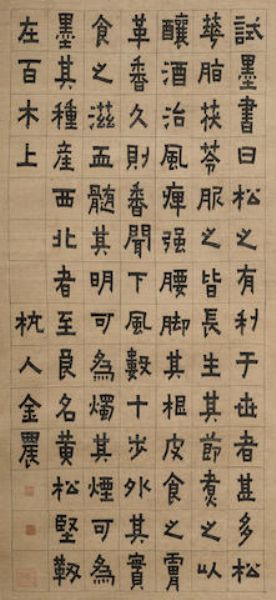 試墨書曰松之有利于世者甚多松
華脂茯苓服之皆長生其節煮之以
釀酒治風痺强腰脚其根皮食之膚
革香久則香聞下風數十步外其實
食之滋血髓其明可為燭其煙可為
墨其種產西北者至良名黄松堅韌
左百木上 杭人金農